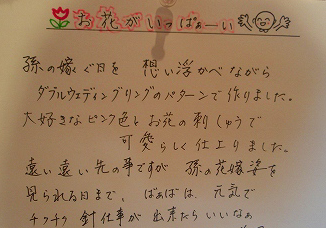 お花がいっぱぁーい
孫の嫁ぐ日を 想い浮かべながら
ダブルウェディングリングのパターンで作りました。
大好きなピンク色とお花の刺しゅうで
可愛らしく仕上りました。
遠い遠い先の事ですが 孫の花嫁姿を
見られる日まで、ばぁばは、元気で
チクチク 針仕事が 出来たらいいなぁ